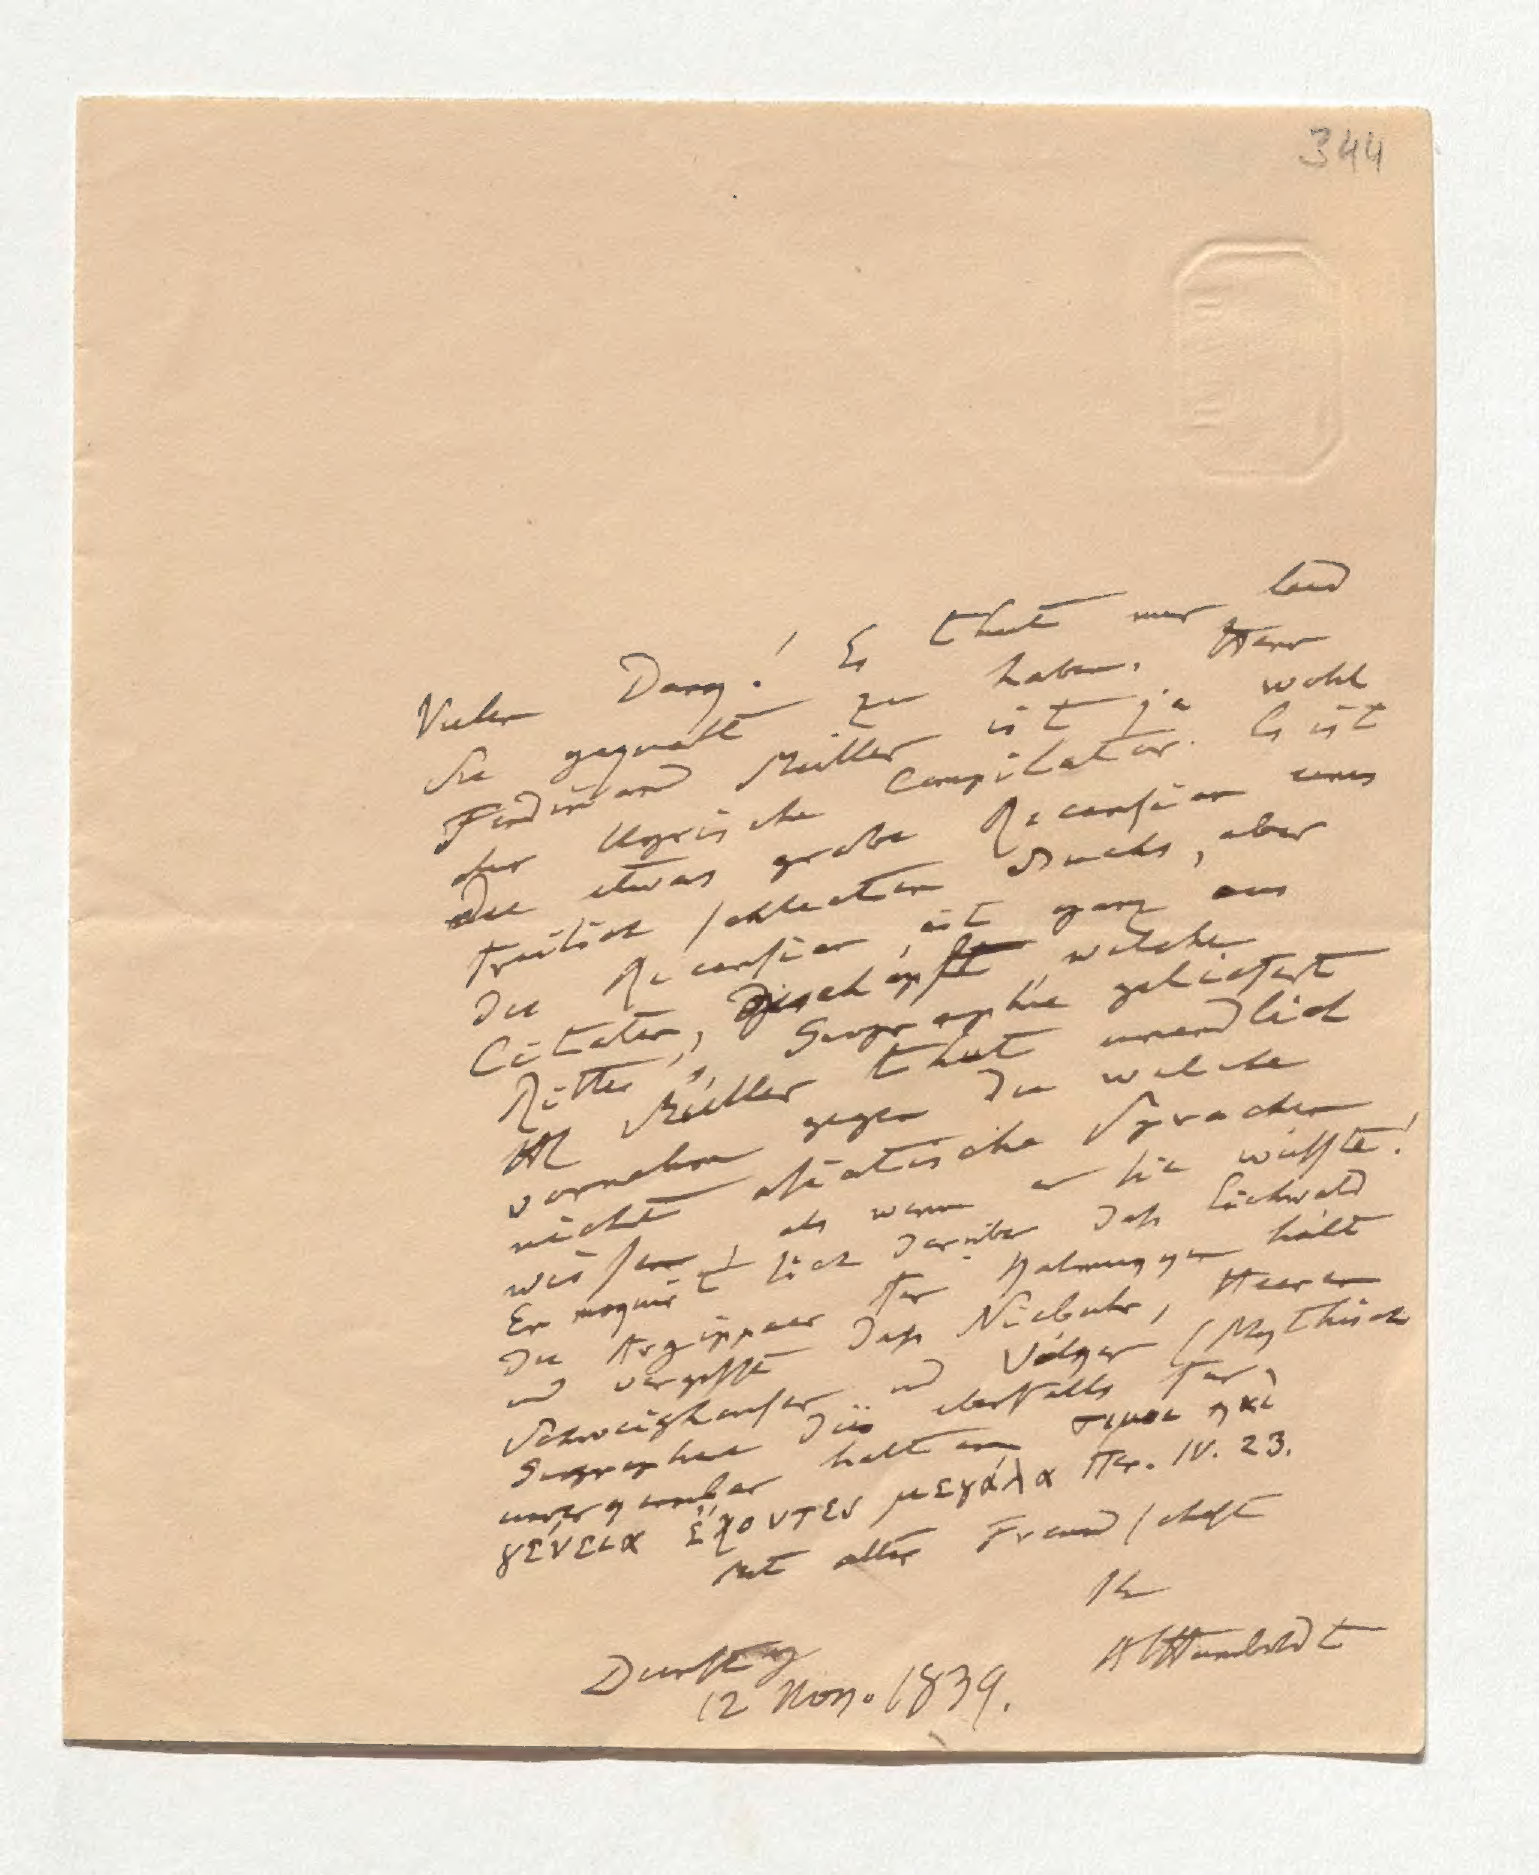 344
Vielen Dank! Es thut mir leid
Sie gequält zu haben. Herr
Ferdinand Müller ist ja wohl
der Ugrische Compilator. Es ist
die etwas grobe Recension eines
freilich schlechten Buchs, aber
die Recension ist ganz aus
Citaten, geschöpft welche
Ritter's Geographie geliefert
H Müller thut unendlich
vornehm gegen die welche
nicht asiatische Sprachen
wissen, als wenn er sie wüsste!
Er moquirt sich darüber daß Eichwald
die Argippaer für Kalmukken hält
und vergisst daß Niebuhr, Heeren
Schweighäuser und Völger (Mythische
Geographie die ebenfalls für
halten σιμοι και
γένεια ἔχοντες μεγάλα Her. IV. 23.
Mit alter Freundschaft
Ihr
AlHumboldt
Dienstag
12 Nov. 1839.